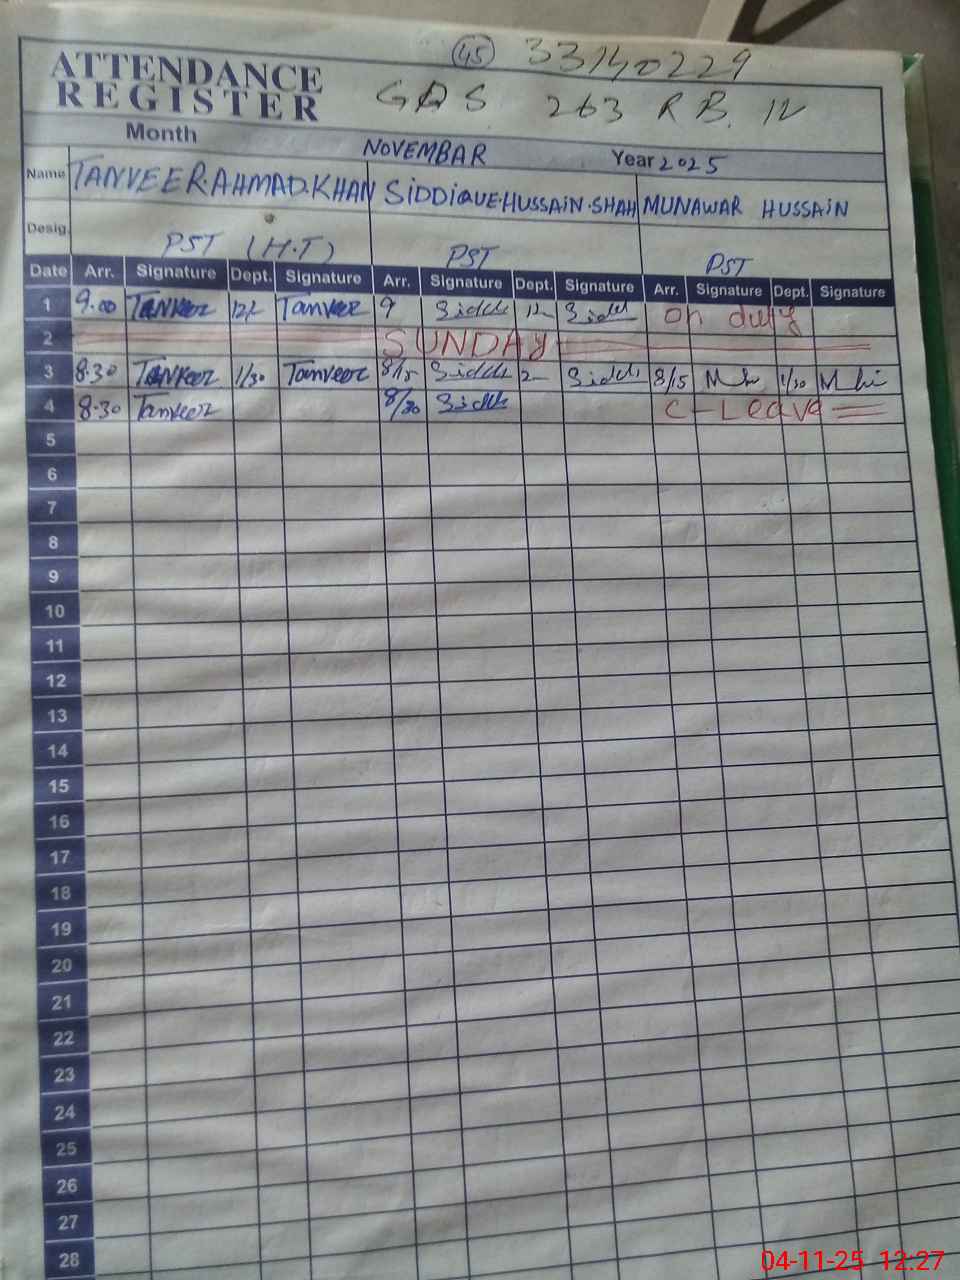 45 33140229
ATTENDANCE
REGISTER
GPS 263 R B. IV
Month NOVEMBAR Year 2025
Name TANVEER.AHMAD.KHAN SIDDIQUE.HUSSAIN.SHAH MUNAWAR HUSSAIN
Desig. PST (H.T) PST PST
Date Arr. Signature Dept. Signature Arr. Signature Dept. Signature Arr. Signature Dept. Signature
1 9.00 Tanveer Tanveer 9 Siddi Siddi on duty
2 SUNDAY
3 8.30 Tanveer 1/30 Tanveer 8/15 Siddi 2 Siddi 8/15 1/30
4 8.30 Tanveer 8/30 Siddi C-Leave
5
6
7
8
9
10
11
12
13
14
15
16
17
18
19
20
21
22
23
24
25
26
27
28
04-11-25 12:27